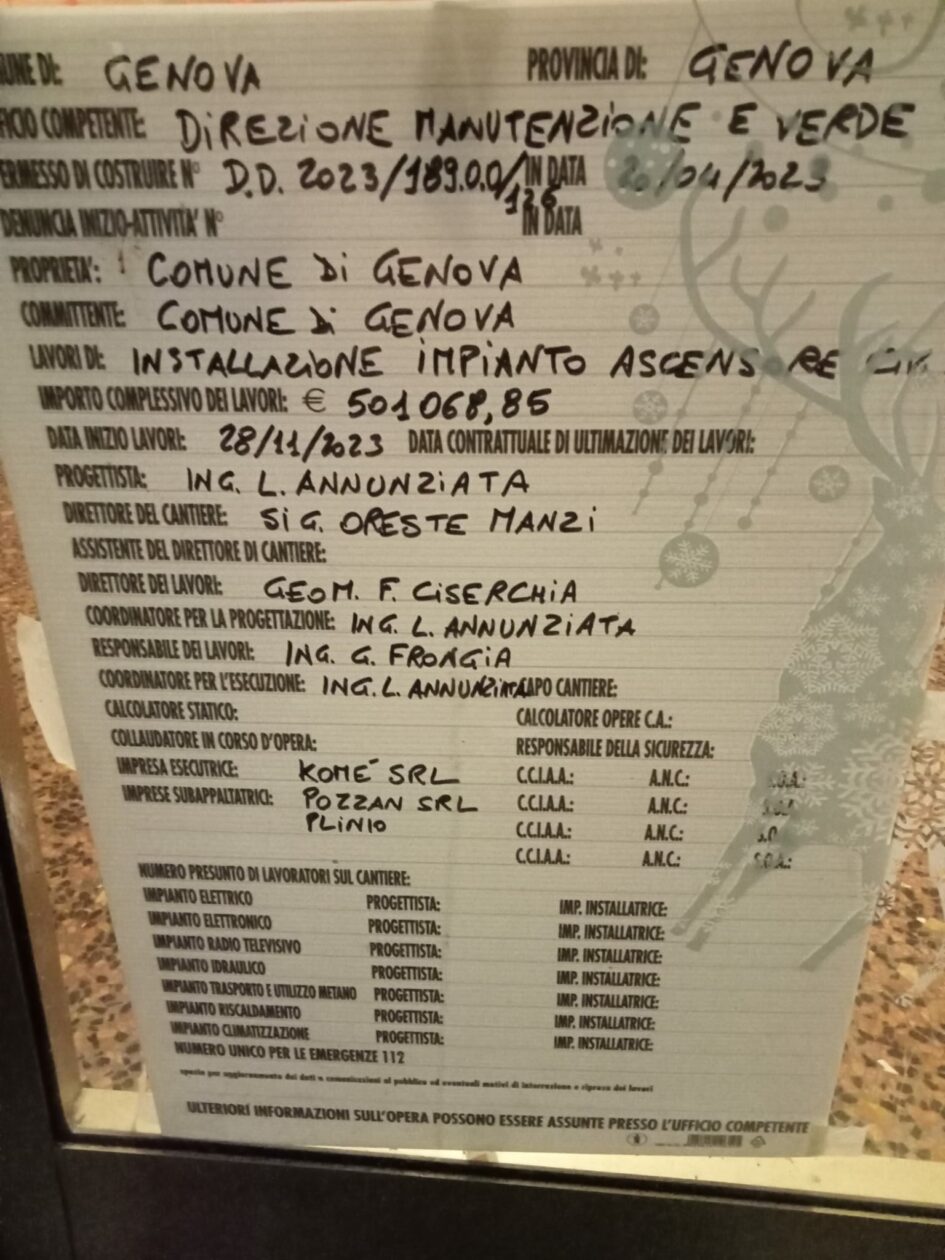 UNE DI: GENOVA PROVINCIA DI: GENOVA
FICIO COMPETENTE: DIREZIONE MANUTENZIONE E VERDE
ERMESSO DI COSTRUIRE N° D.D. 2023/189.0.0/126 IN DATA 26/04/2023
DENUNCIA INIZIO-ATTIVITA' N° IN DATA
PROPRIETA': COMUNE Di GENOVA
COMMITTENTE: COMUNE Di GENOVA
LAVORI DI: INSTALLAZIONE IMPIANTO ASCENSORE
IMPORTO COMPLESSIVO DEI LAVORI: € 501068,85
DATA INIZIO LAVORI: 28/11/2023 DATA CONTRATTUALE DI ULTIMAZIONE DEI LAVORI:
PROGETTISTA: ING. L. ANNUNZIATA
DIRETTORE DEL CANTIERE: SIG. ORESTE MANZI
ASSISTENTE DEL DIRETTORE DI CANTIERE:
DIRETTORE DEI LAVORI: GEOM. F. CISERCHIA
COORDINATORE PER LA PROGETTAZIONE: ING. L. ANNUNZIATA
RESPONSABILE DEI LAVORI: ING. G. FRONGIA
COORDINATORE PER L'ESECUZIONE: ING. L. ANNUNZIATA CAPO CANTIERE:
CALCOLATORE STATICO: CALCOLATORE OPERE C.A.:
COLLAUDATORE IN CORSO D'OPERA: RESPONSABILE DELLA SICUREZZA:
IMPRESA ESECUTRICE: KOMÉ SRL C.C.I.A.A.: A.N.C.: S.O.A.:
IMPRESE SUBAPPALTATRICI: POZZAN SRL C.C.I.A.A.: A.N.C.: S.O.A.
PLINIO C.C.I.A.A.: A.N.C.: S.O
C.C.I.A.A.: A.N.C.: S.O.A.:
NUMERO PRESUNTO DI LAVORATORI SUL CANTIERE:
IMPIANTO ELETTRICO PROGETTISTA: IMP. INSTALLATRICE:
IMPIANTO ELETTRONICO PROGETTISTA: IMP. INSTALLATRICE:
IMPIANTO RADIO TELEVISIVO PROGETTISTA: IMP. INSTALLATRICE:
IMPIANTO IDRAULICO PROGETTISTA: IMP. INSTALLATRICE:
IMPIANTO TRASPORTO E UTILIZZO METANO PROGETTISTA: IMP. INSTALLATRICE:
IMPIANTO RISCALDAMENTO PROGETTISTA: IMP. INSTALLATRICE:
IMPIANTO CLIMATIZZAZIONE PROGETTISTA: IMP. INSTALLATRICE:
NUMERO UNICO PER LE EMERGENZE 112
spazio per aggiornamento dei dati o comunicazioni al pubblico ed eventuali motivi di interruzione e ripresa dei lavori
ULTERIORI INFORMAZIONI SULL'OPERA POSSONO ESSERE ASSUNTE PRESSO L'UFFICIO COMPETENTE